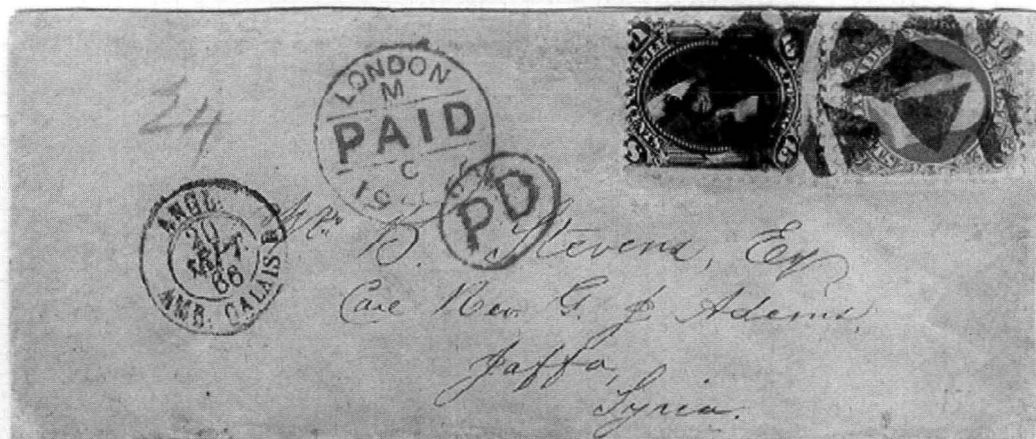 24
LONDON
M
PAID
PD
ANGL.
20
SEPT.
66
AMB. CALAIS
B. Stevens, Esq
Care Rev. G. J. Adams,
Jaffa,
Syria.